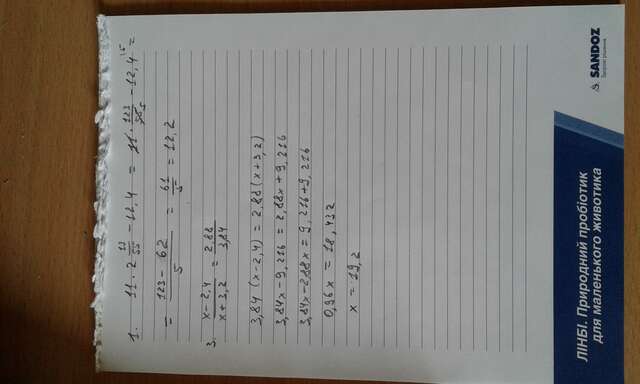 1. 11 · 2 13/55 - 12,4 = 11 · 123/55 5 - 12,4 15 =
= 123 - 62 / 5 = 61/5 = 12,2
3. x - 2,4 / x + 3,2 = 2,88 / 3,84
3,84 (x - 2,4) = 2,88 (x + 3,2)
3,84x - 9,216 = 2,88x + 9,216
3,84x - 2,88x = 9,216 + 9,216
0,96x = 18,432
x = 19,2
SANDOZ
ЛІНБІ. Природний пробіотик
для маленького животика